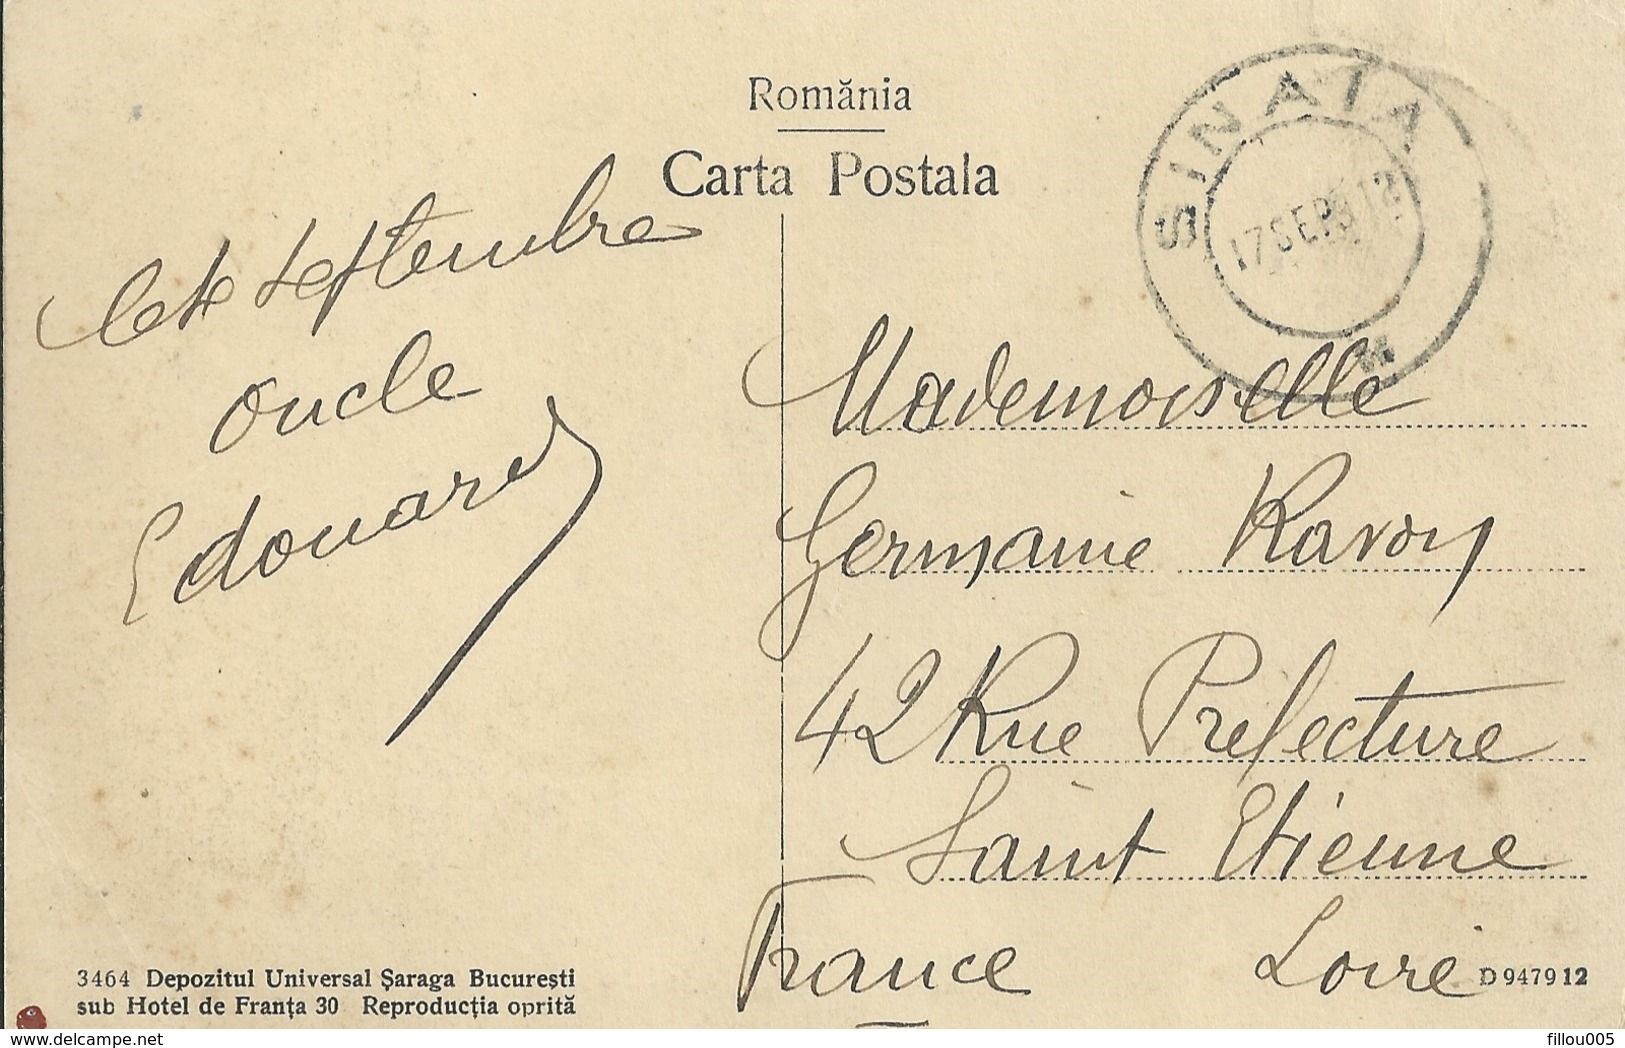 România
Carta Postala
SINAIA
17 SEP 912
septembre
oncle
Edouard
Mademoiselle
Germaine Ravon
42 Rue Prefecture
Saint Etienne
France Loire
3464 Depozitul Universal Șaraga București
sub Hotel de Franța 30 Reproducția oprită
D 947912
delcampe.net
fillou005